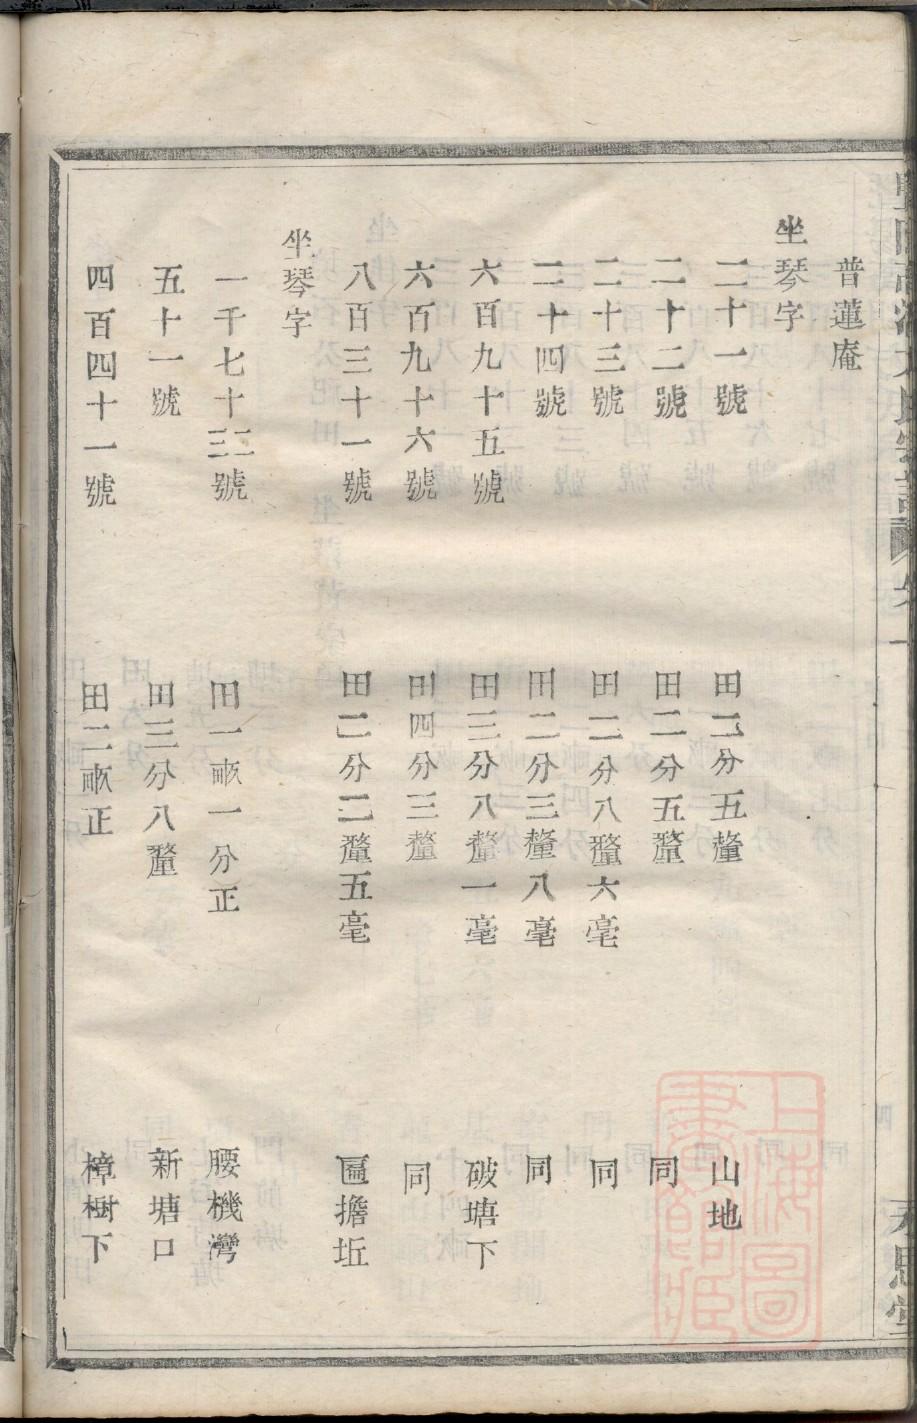 普蓮庵
坐琴字
二十一號 田二分五釐 山地
二十二號 田二分五釐 同
二十三號 田二分八釐六毫 同
二十四號 田二分三釐八毫 同
六百九十五號 田三分八釐一毫 破塘下
六百九十六號 田四分三釐 同
八百三十一號 田二分二釐五毫 匾擔坵
坐琴字
一千七十二號 田一畝一分正 腰機灣
五十一號 田三分八釐 新塘口
四百四十一號 田二畝正 樟樹下
上海圖書館藏